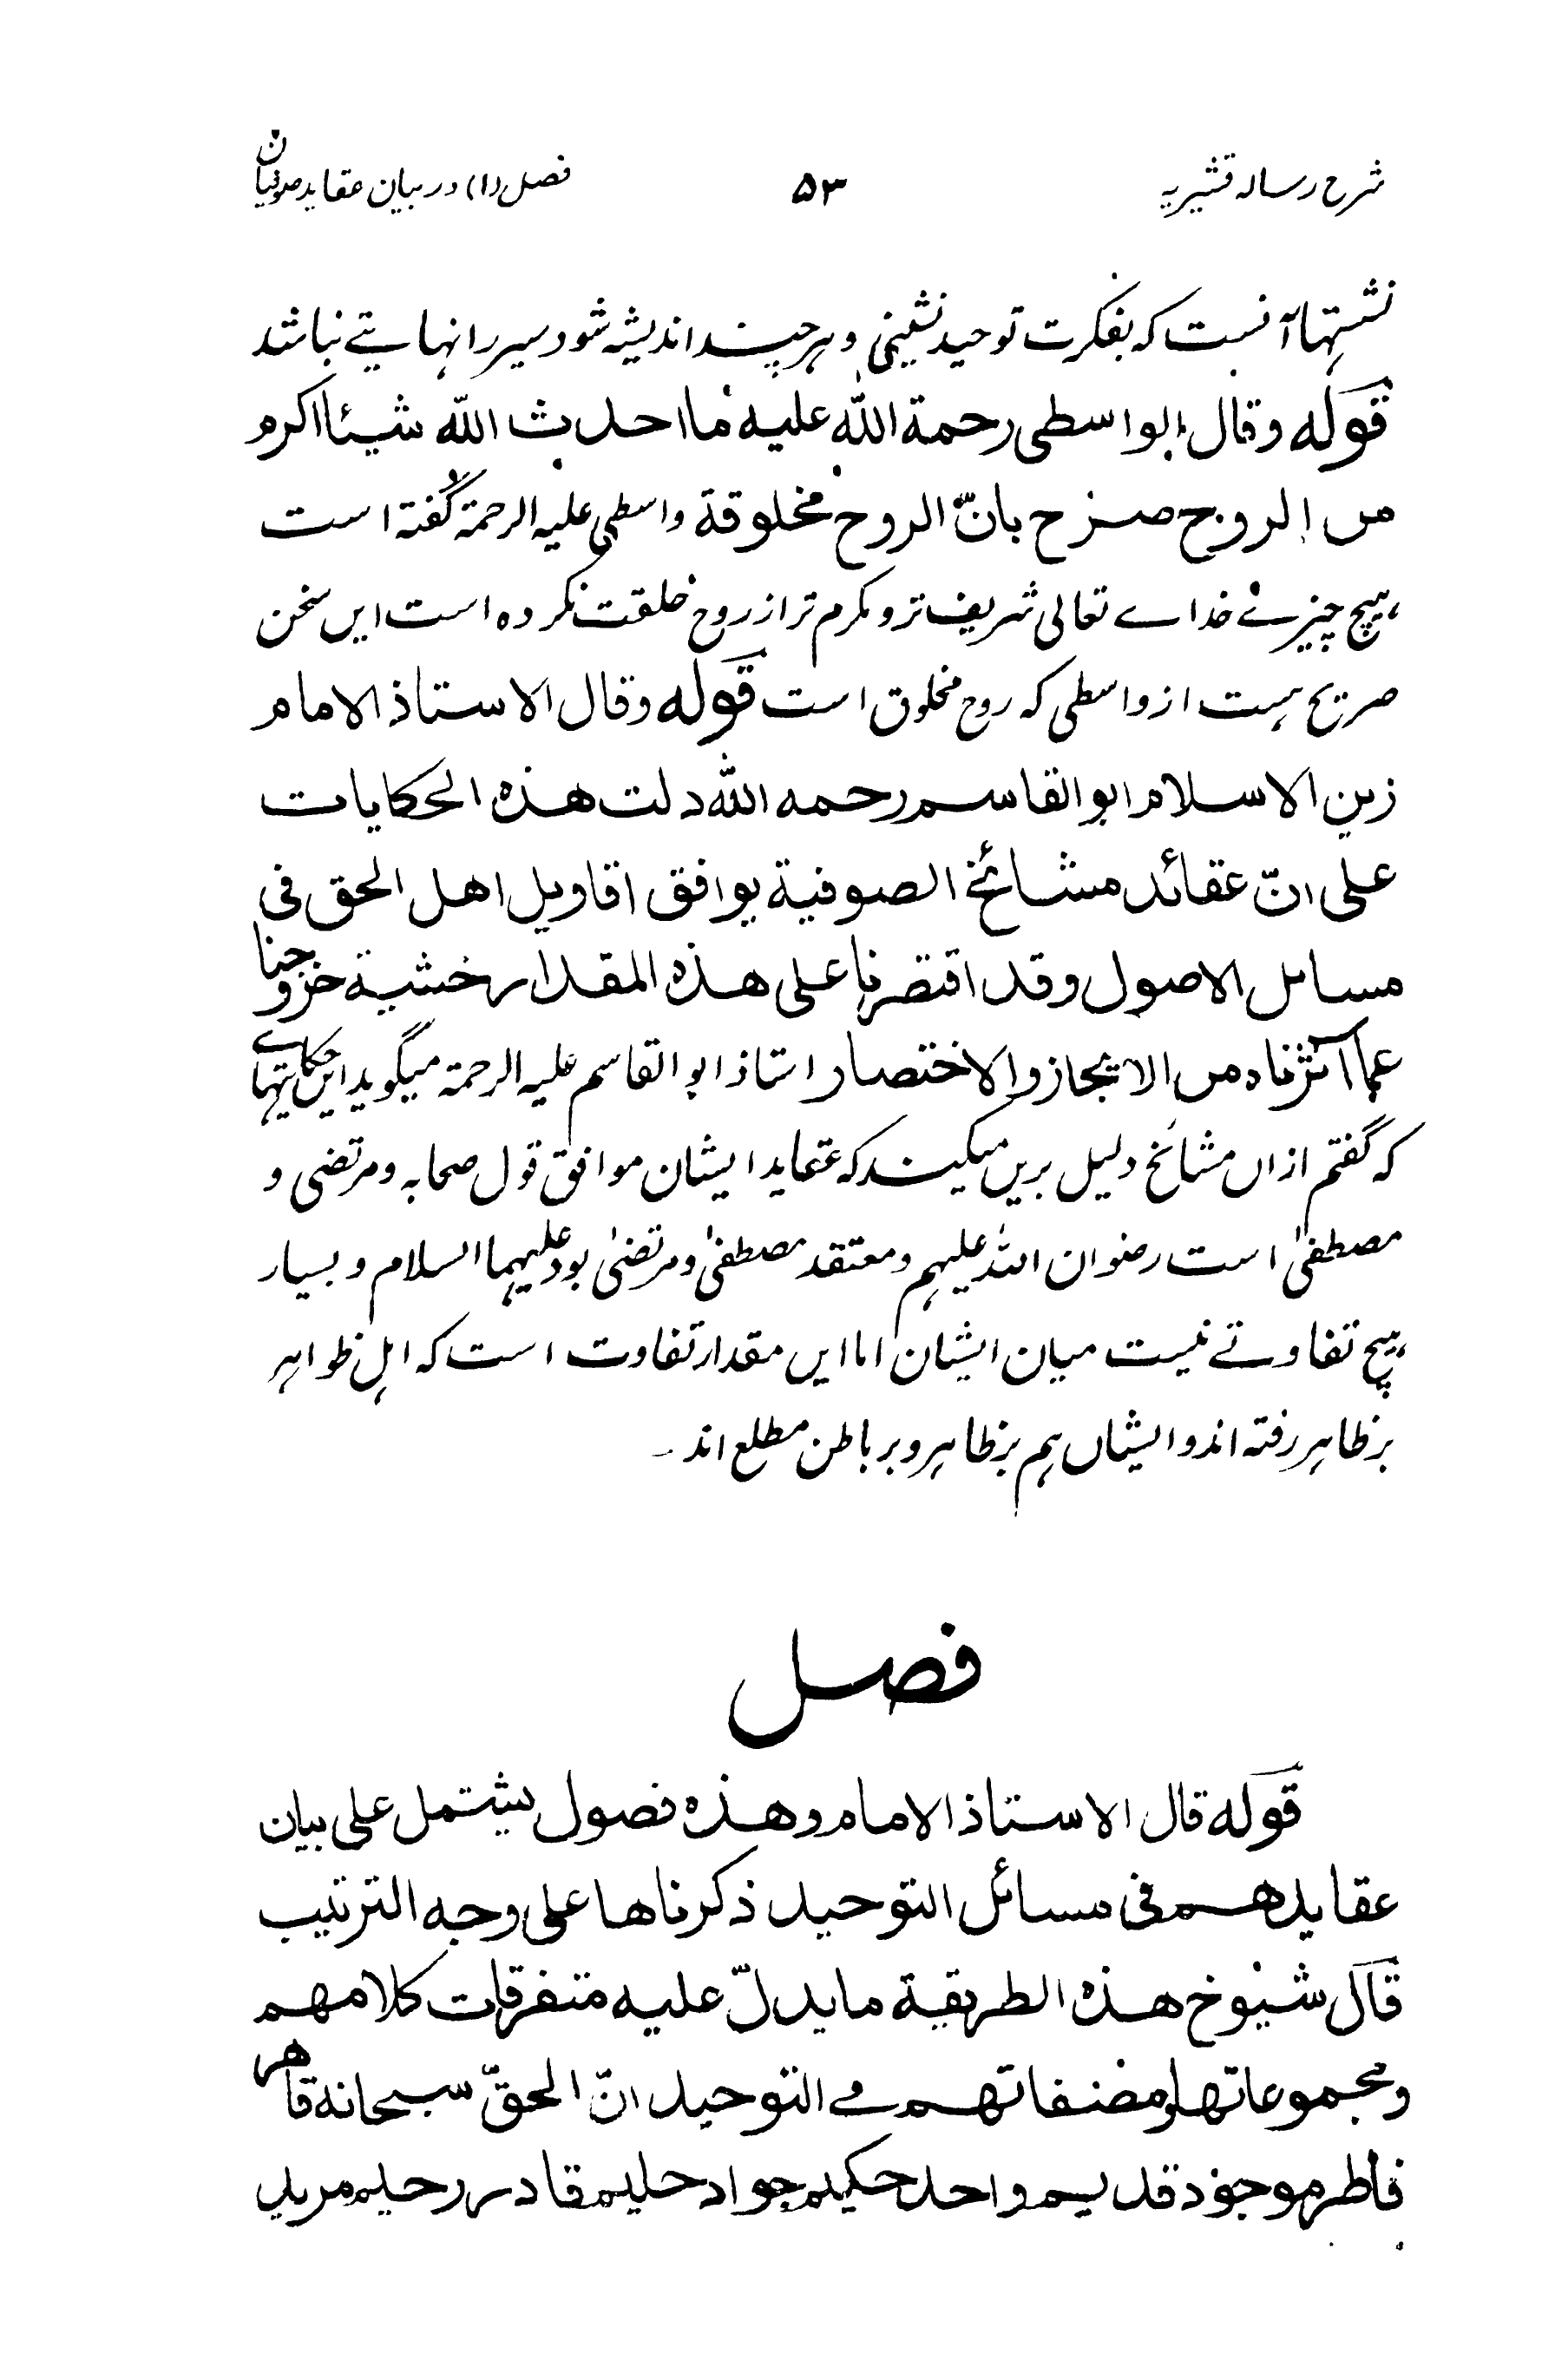 شرح رسالہ قشیریہ ۵۳ فصل (۱) در بیان عقاید صوفیان
نشستہا آنست کہ بفکرت توحید نشینی و ہر چند اندیشہ شود سیر را نہایتے نباشد
قوله وقال الواسطی رحمة الله علیه ما احدث الله شیئا اکرم
من الروح صرح بانّ الروح مخلوقة واسطی علیہ الرحمۃ گفتہ است
ہیچ چیزے خداے تعالی شریف تر و مکرم تر از روح خلقت نکردہ است ایں سخن
صریح ست از واسطی کہ روح مخلوق است قوله وقال الاستاذ الامام
زین الاسلام ابوالقاسم رحمه الله دلت هذه الحکایات
علی انّ عقائد مشائخ الصوفیة یوافق اقاویل اهل الحق فی
مسائل الاصول وقد اقتصرنا علی هذه المقدار خشیة خروجنا
عما آثرناه من الایجاز والاختصار استاذ ابوالقاسم علیہ الرحمۃ میگوید ایں حکایتہاے
کہ گفتم ازاں مشائخ دلیل بریں میکند کہ عقاید ایشان موافق قول صحابہ و مرتضی و
مصطفیٰ است رضوان اللہ علیہم و معتقد مصطفیٰ و مرتضیٰ بود علیہما السلام و بسیار
ہیچ تفاوتے نیست میان ایشان اما ایں مقدار تفاوت است کہ اہل ظواہر
بر ظاہر رفتہ اند و ایشاں ہم بر ظاہر و بر باطن مطلع اند ۔
فصل
قوله قال الاستاذ الامام وهذه فصول یشتمل علی بیان
عقایدهم فی مسائل التوحید ذکرناها علی وجه الترتیب
قال شیوخ هذه الطریقة ما یدلّ علیه متفرقات کلامهم
ومجموعاتها ومصنفاتهم فے التوحید انّ الحقّ سبحانه قاهر
فاطر موجود قدیم واحد حکیم جواد حلیم قادر رحیم مرید